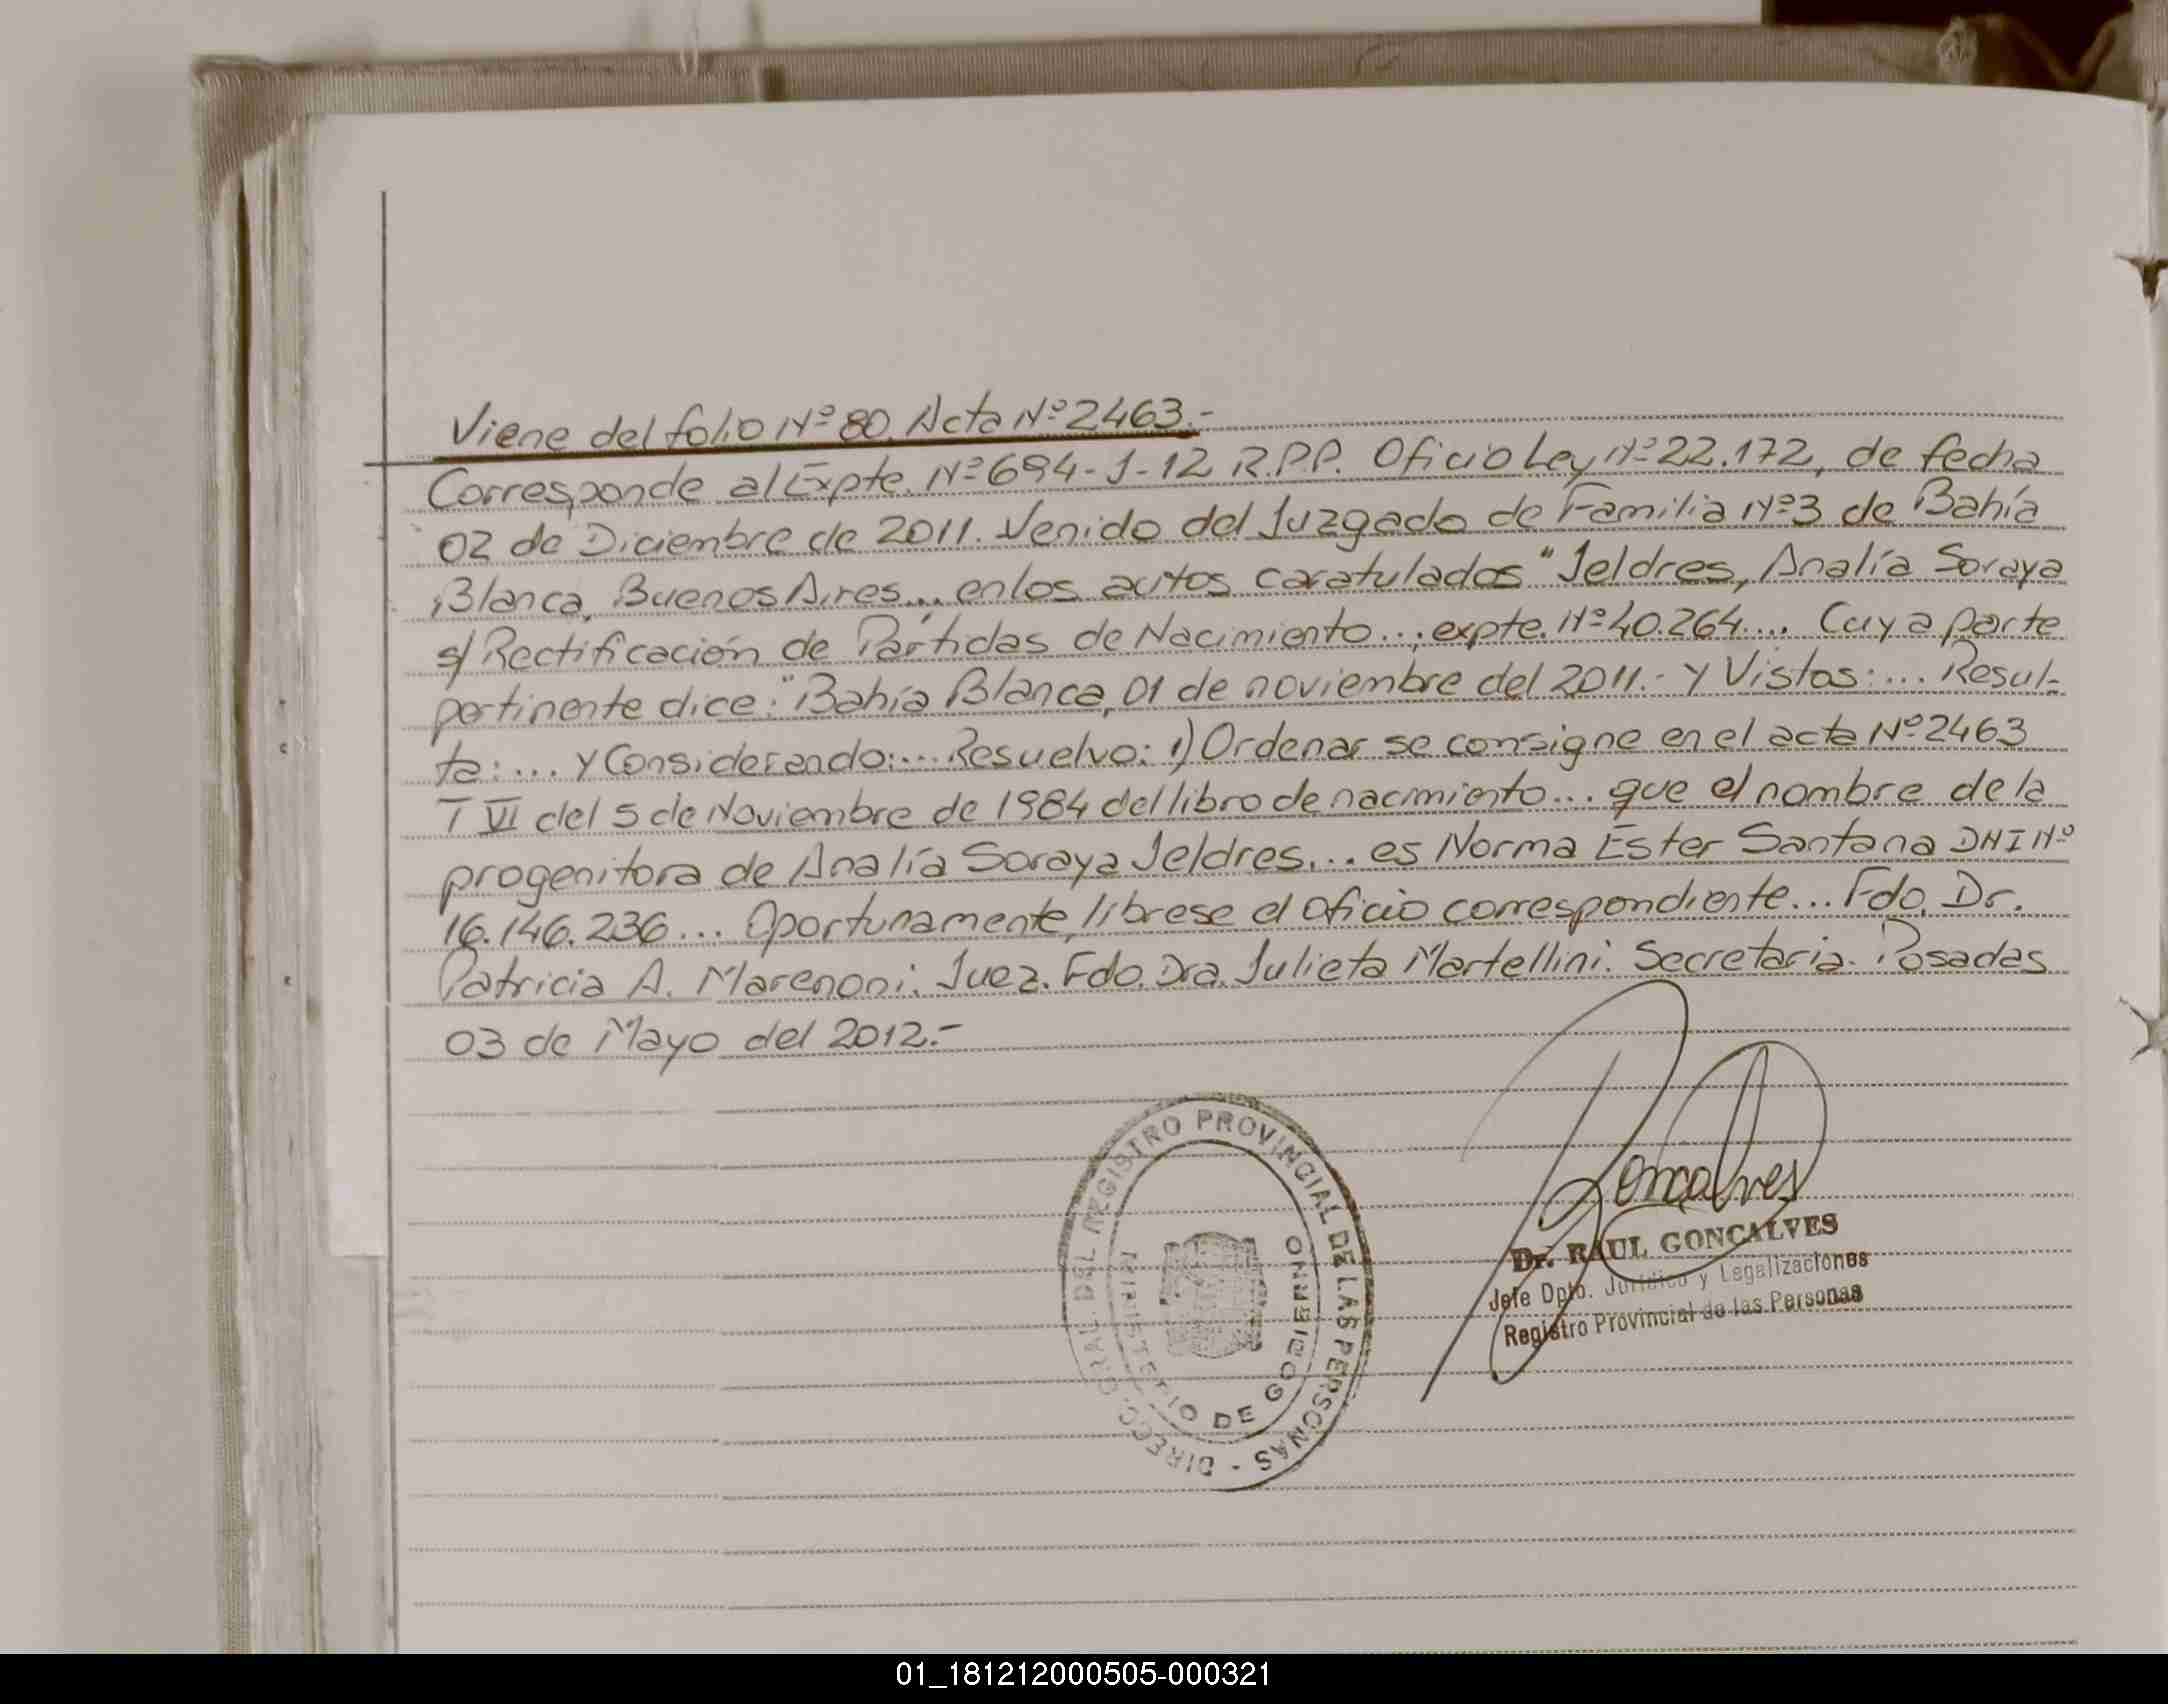 Viene del folio Nº 80. Acta Nº 2463.-
Corresponde al Expte. Nº 694-J-12 R.P.P. Oficio Ley Nº 22.172, de fecha
02 de Diciembre de 2011. Venido del Juzgado de Familia Nº 3 de Bahía
Blanca, Buenos Aires... en los autos caratulados "Jeldres, Analía Soraya
s/ Rectificación de Partidas de Nacimiento..., expte. Nº 40.264.... Cuya parte
pertinente dice: "Bahía Blanca, 01 de noviembre del 2011.- Y Vistos:... Resul-
ta:... y Considerando:... Resuelvo: 1) Ordenar se consigne en el acta Nº 2463
T VI del 5 de Noviembre de 1984 del libro de nacimiento... que el nombre de la
progenitora de Analía Soraya Jeldres... es Norma Ester Santana DNI Nº
16.146.236... Oportunamente, librese el oficio correspondiente... Fdo. Dr.
Patricia A. Marenoni. Juez. Fdo. Dra. Julieta Martellini. Secretaria. Posadas
03 de Mayo del 2012.-
DIRECC. GRAL. DEL REGISTRO PROVINCIAL DE LAS PERSONAS -
MINISTERIO DE GOBIERNO
Goncalves
Dr. RAUL GONCALVES
Jefe Dpto. Jurídico y Legalizaciones
Registro Provincial de las Personas
01_181212000505-000321